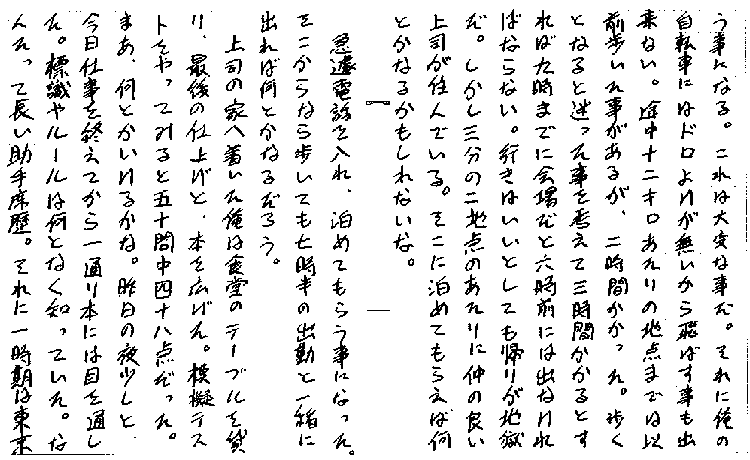 う事になる。これは大変な事だ。それに俺の
自転車にはドロよけが無いから飛ばす事も出
来ない。途中十二キロあたりの地点までは以
前歩いた事があるが、二時間かかった。歩く
となると迷った事を考えて三時間かかるとす
れば九時までに会場だと六時前には出なけれ
ばならない。行きはいいとしても帰りが地獄
だ。しかし三分の二地点のあたりに仲の良い
上司が住んでいる。そこに泊めてもらえば何
とかなるかもしれないな。
急遽電話を入れ、泊めてもらう事になった。
そこからなら歩いても七時半の出勤と一緒に
出れば何とかなるだろう。
上司の家へ着いた俺は食堂のテーブルを貸
り、最後の仕上げと、本を広げた。模擬テス
トをやってみると五十問中四十八点だった。
まあ、何とかいけるかな。昨日の夜少しと、
今日仕事を終えてから一通り本には目を通し
た。標識やルールは何となく知っていた。な
んたって長い助手席歴。それに一時期は東京